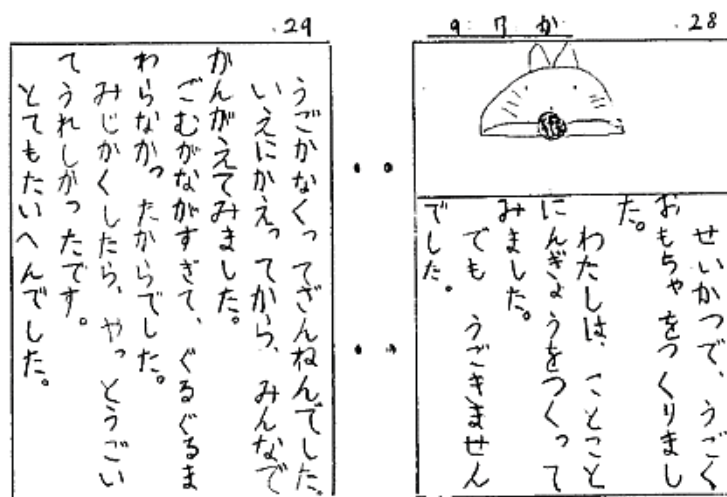 .28
9 7 か
せいかつで、うごく
おもちゃをつくりまし
た。
わたしは、ことこと
にんぎょうをつくって
みました。
でも うごきません
でした。
.29
うごかなくってざんねんでした。
いえにかえってから、みんなで
かんがえてみました。
ごむがながすぎて、ぐるぐるま
わらなかったからでした。
みじかくしたら、やっとうごい
てうれしかったです。
とてもたいへんでした。